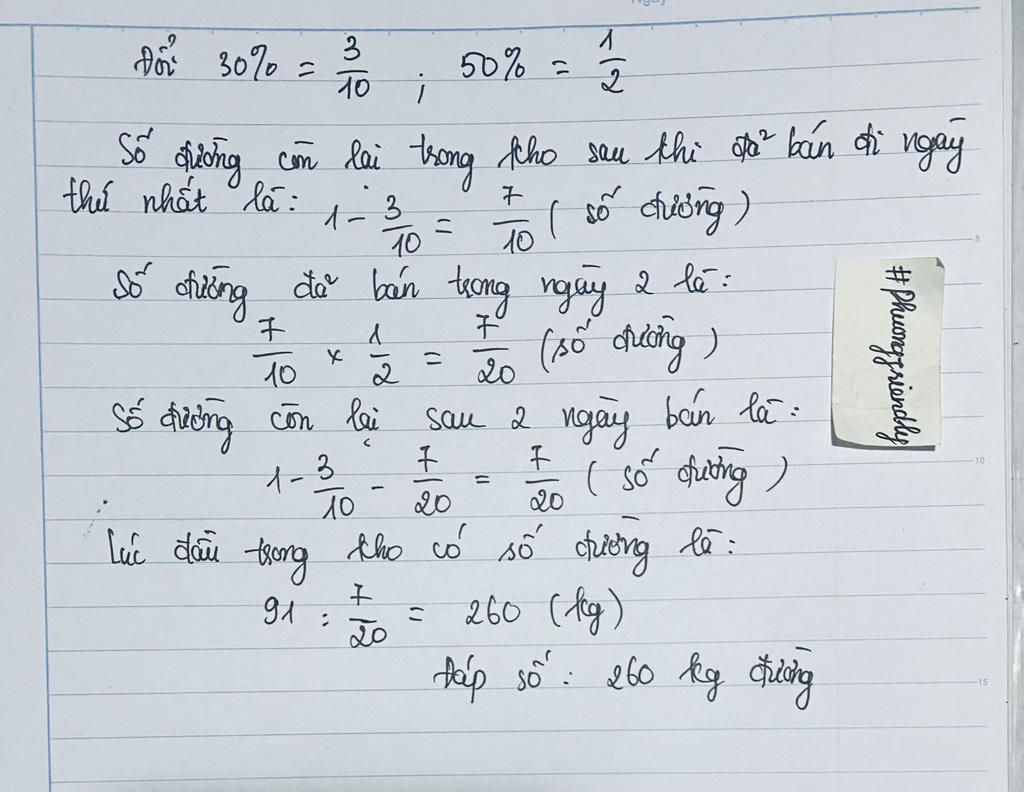 Đổi 30% = 3/10 ; 50% = 1/2
Số đường còn lại trong kho sau khi đã bán đi ngày
thứ nhất là: 1 - 3/10 = 7/10 ( số đường )
Số đường đã bán trong ngày 2 là:
7/10 x 1/2 = 7/20 (số đường )
Số đường còn lại sau 2 ngày bán là:
1 - 3/10 - 7/20 = 7/20 ( số đường )
Lúc đầu trong kho có số đường là:
91 : 7/20 = 260 (kg)
Đáp số: 260 kg đường
#phuongfriendly